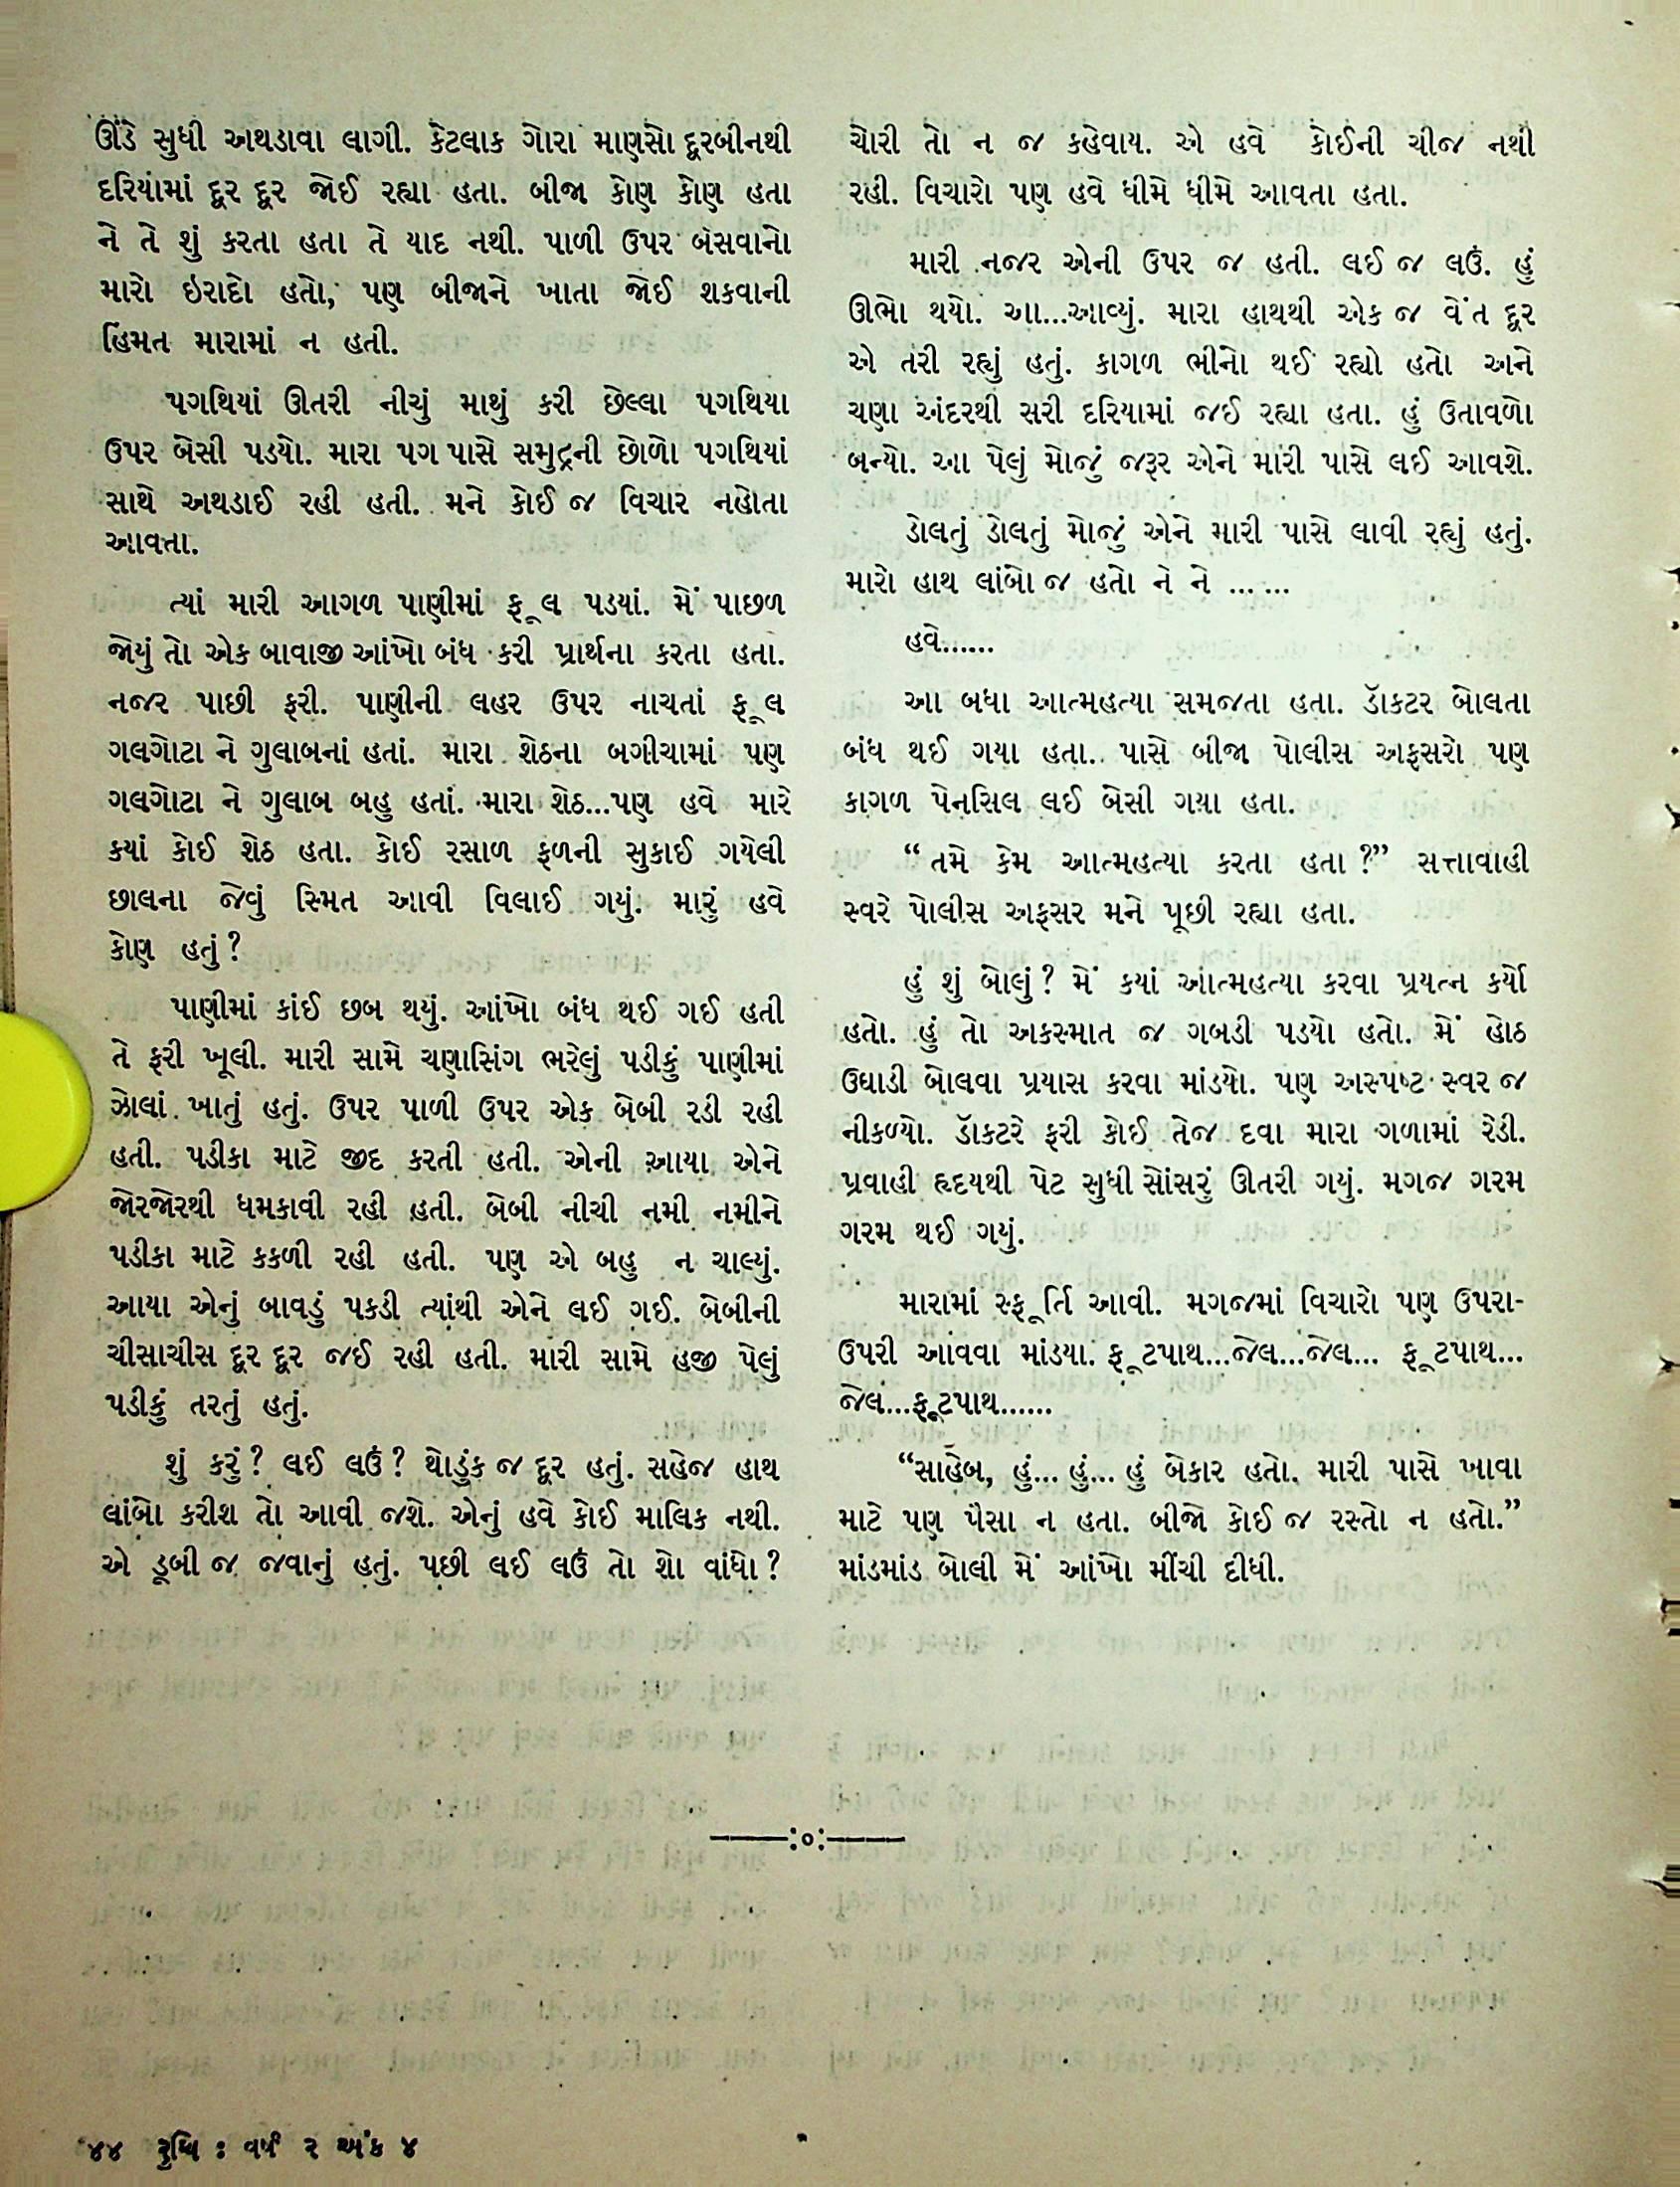 ઊંડે સુધી અથડાવા લાગી. કેટલાક ગોરા માણસો દૂરબીનથી
દરિયામાં દૂર દૂર જોઈ રહ્યા હતા. બીજા કોણ કોણ હતા
ને તે શું કરતા હતા તે યાદ નથી. પાળી ઉપર બેસવાનો
મારો ઇરાદો હતો, પણ બીજાને ખાતા જોઈ શકવાની
હિંમત મારામાં ન હતી.
પગથિયાં ઊતરી નીચું માથું કરી છેલ્લા પગથિયા
ઉપર બેસી પડયો. મારા પગ પાસે સમુદ્રની છોળો પગથિયાં
સાથે અથડાઈ રહી હતી. મને કોઈ જ વિચાર નહોતા
આવતા.
ત્યાં મારી આગળ પાણીમાં ફૂલ પડયાં. મેં પાછળ
જોયું તો એક બાવાજી આંખો બંધ કરી પ્રાર્થના કરતા હતા.
નજર પાછી ફરી. પાણીની લહર ઉપર નાચતાં ફૂલ
ગલગોટા ને ગુલાબનાં હતાં. મારા શેઠના બગીચામાં પણ
ગલગોટા ને ગુલાબ બહુ હતાં. મારા શેઠ...પણ હવે મારે
કયાં કોઈ શેઠ હતા. કોઈ રસાળ ફળની સુકાઈ ગયેલી
છાલના જેવું સ્મિત આવી વિલાઈ ગયું. મારું હવે
કોણ હતું?
પાણીમાં કાંઈ છબ થયું. આંખો બંધ થઈ ગઈ હતી
તે ફરી ખૂલી. મારી સામે ચણાસિંગ ભરેલું પડીકું પાણીમાં
ઝોલાં ખાતું હતું. ઉપર પાળી ઉપર એક બેબી રડી રહી
હતી. પડીકા માટે જીદ કરતી હતી. એની આયા એને
જોરજોરથી ધમકાવી રહી હતી. બેબી નીચી નમી નમીને
પડીકા માટે કકળી રહી હતી. પણ એ બહુ ન ચાલ્યું.
આયા એનું બાવડું પકડી ત્યાંથી એને લઈ ગઈ. બેબીની
ચીસાચીસ દૂર દૂર જઈ રહી હતી. મારી સામે હજી પેલું
પડીકું તરતું હતું.
શું કરું? લઈ લઉં? થોડુંક જ દૂર હતું. સહેજ હાથ
લાંબો કરીશ તો આવી જશે. એનું હવે કોઈ માલિક નથી.
એ ડૂબી જ જવાનું હતું. પછી લઈ લઉં તો શો વાંધો?
ચોરી તો ન જ કહેવાય. એ હવે કોઈની ચીજ નથી
રહી. વિચારો પણ હવે ધીમે ધીમે આવતા હતા.
મારી નજર એની ઉપર જ હતી. લઈ જ લઉં. હું
ઊભો થયો. આ...આવ્યું. મારા હાથથી એક જ વેંત દૂર
એ તરી રહ્યું હતું. કાગળ ભીનો થઈ રહ્યો હતો અને
ચણા અંદરથી સરી દરિયામાં જઈ રહ્યા હતા. હું ઉતાવળો
બન્યો. આ પેલું મોજું જરૂર એને મારી પાસે લઈ આવશે.
ડોલતું ડોલતું મોજું એને મારી પાસે લાવી રહ્યું હતું.
મારો હાથ લાંબો જ હતો ને ને ... ...
હવે......
આ બધા આત્મહત્યા સમજતા હતા. ડૉકટર બોલતા
બંધ થઈ ગયા હતા. પાસે બીજા પોલીસ અફસરો પણ
કાગળ પેનસિલ લઈ બેસી ગયા હતા.
“તમે કેમ આત્મહત્યા કરતા હતા?” સત્તાવાહી
સ્વરે પોલીસ અફસર મને પૂછી રહ્યા હતા.
હું શું બોલું? મેં કયાં આત્મહત્યા કરવા પ્રયત્ન કર્યો
હતો. હું તો અકસ્માત જ ગબડી પડયો હતો. મેં હોઠ
ઉઘાડી બોલવા પ્રયાસ કરવા માંડયો. પણ અસ્પષ્ટ સ્વર જ
નીકળ્યો. ડૉકટરે ફરી કોઈ તેજ દવા મારા ગળામાં રેડી.
પ્રવાહી હૃદયથી પેટ સુધી સોંસરું ઊતરી ગયું. મગજ ગરમ
ગરમ થઈ ગયું.
મારામાં સ્ફૂર્તિ આવી. મગજમાં વિચારો પણ ઉપરા-
ઉપરી આવવા માંડયા. ફૂટપાથ...જેલ...જેલ... ફૂટપાથ...
જેલ...ફૂટપાથ......
“સાહેબ, હું... હું... હું બેકાર હતો. મારી પાસે ખાવા
માટે પણ પૈસા ન હતા. બીજો કોઈ જ રસ્તો ન હતો.”
માંડમાંડ બોલી મેં આંખો મીંચી દીધી.
૪૪ રુચિ : વર્ષ ૨ અંક ૪